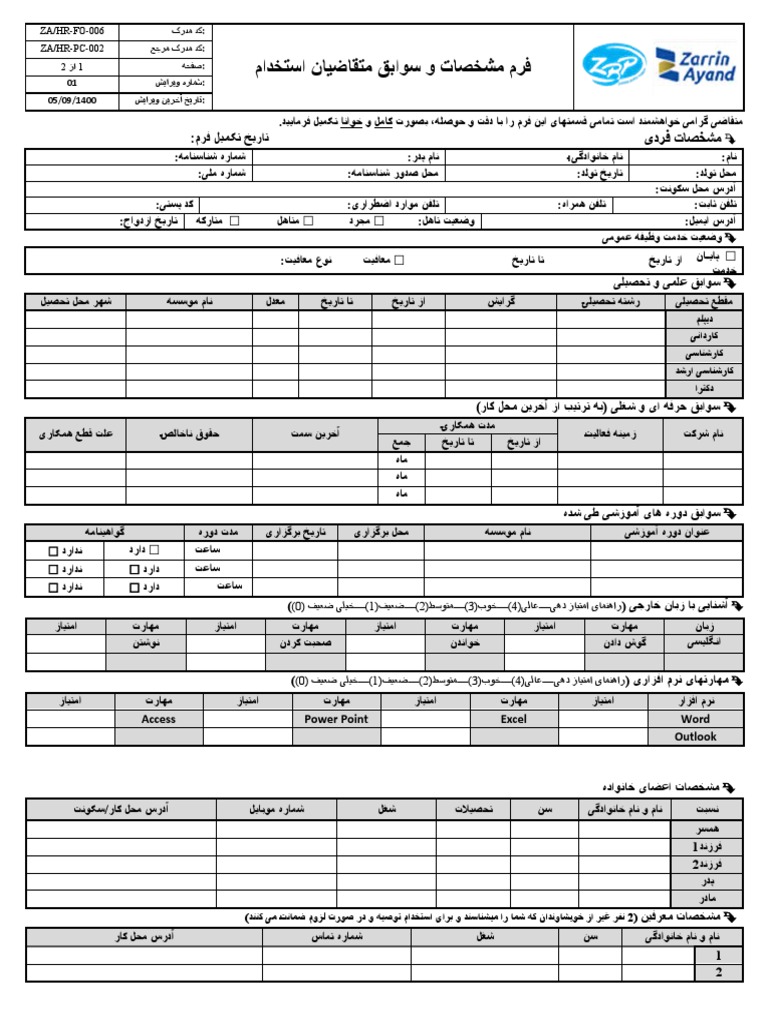 کد مدرک: ZA/HR-FO-006
کد مدرک مرجع: ZA/HR-PC-002
صفحه: 1 از 2
شماره ویرایش: 01
تاریخ آخرین ویرایش: 05/09/1400
فرم مشخصات و سوابق متقاضیان استخدام
ZRP
Zarrin Ayand
متقاضی گرامی خواهشمند است تمامی قسمتهای این فرم را با دقت و حوصله، بصورت کامل و خوانا تکمیل فرمایید.
مشخصات فردی تاریخ تکمیل فرم:
نام: نام خانوادگی: نام پدر: شماره شناسنامه:
محل تولد: تاریخ تولد: محل صدور شناسنامه: شماره ملی:
آدرس محل سکونت:
تلفن ثابت: تلفن همراه: تلفن موارد اضطراری: کد پستی:
آدرس ایمیل: وضعیت تاهل: مجرد □ متاهل □ متارکه □ تاریخ ازدواج:
وضعیت خدمت وظیفه عمومی
□ پایان خدمت از تاریخ تا تاریخ □ معافیت نوع معافیت:
سوابق علمی و تحصیلی
مقطع تحصیلی رشته تحصیلی گرایش از تاریخ تا تاریخ معدل نام موسسه شهر محل تحصیل
دیپلم
کاردانی
کارشناسی
کارشناسی ارشد
دکترا
سوابق حرفه ای و شغلی (به ترتیب از آخرین محل کار)
نام شرکت زمینه فعالیت مدت همکاری آخرین سمت حقوق ناخالص علت قطع همکاری
از تاریخ تا تاریخ جمع
ماه
ماه
ماه
سوابق دوره های آموزشی طی شده
عنوان دوره آموزشی نام موسسه محل برگزاری تاریخ برگزاری مدت دوره گواهینامه
ساعت □ دارد ندارد □
ساعت دارد □ ندارد □
ساعت دارد □ ندارد □
آشنایی با زبان خارجی (راهنمای امتیاز دهی__عالی(4)__خوب(3)__متوسط(2)__ضعیف(1)__خیلی ضعیف (0))
زبان مهارت امتیاز مهارت امتیاز مهارت امتیاز مهارت امتیاز
انگلیسی گوش دادن خواندن صحبت کردن نوشتن
مهارتهای نرم افزاری (راهنمای امتیاز دهی__عالی(4)__خوب(3)__متوسط(2)__ضعیف(1)__خیلی ضعیف (0))
نرم افزار امتیاز مهارت امتیاز مهارت امتیاز مهارت امتیاز
Word Excel Power Point Access
Outlook
مشخصات اعضای خانواده
نسبت نام و نام خانوادگی سن تحصیلات شغل شماره موبایل آدرس محل کار/سکونت
همسر
فرزند1
فرزند2
پدر
مادر
مشخصات معرفین (2 نفر غیر از خویشاوندان که شما را میشناسند و برای استخدام توصیه و در صورت لزوم ضمانت می کنند)
نام و نام خانوادگی سن شغل شماره تماس آدرس محل کار
1
2